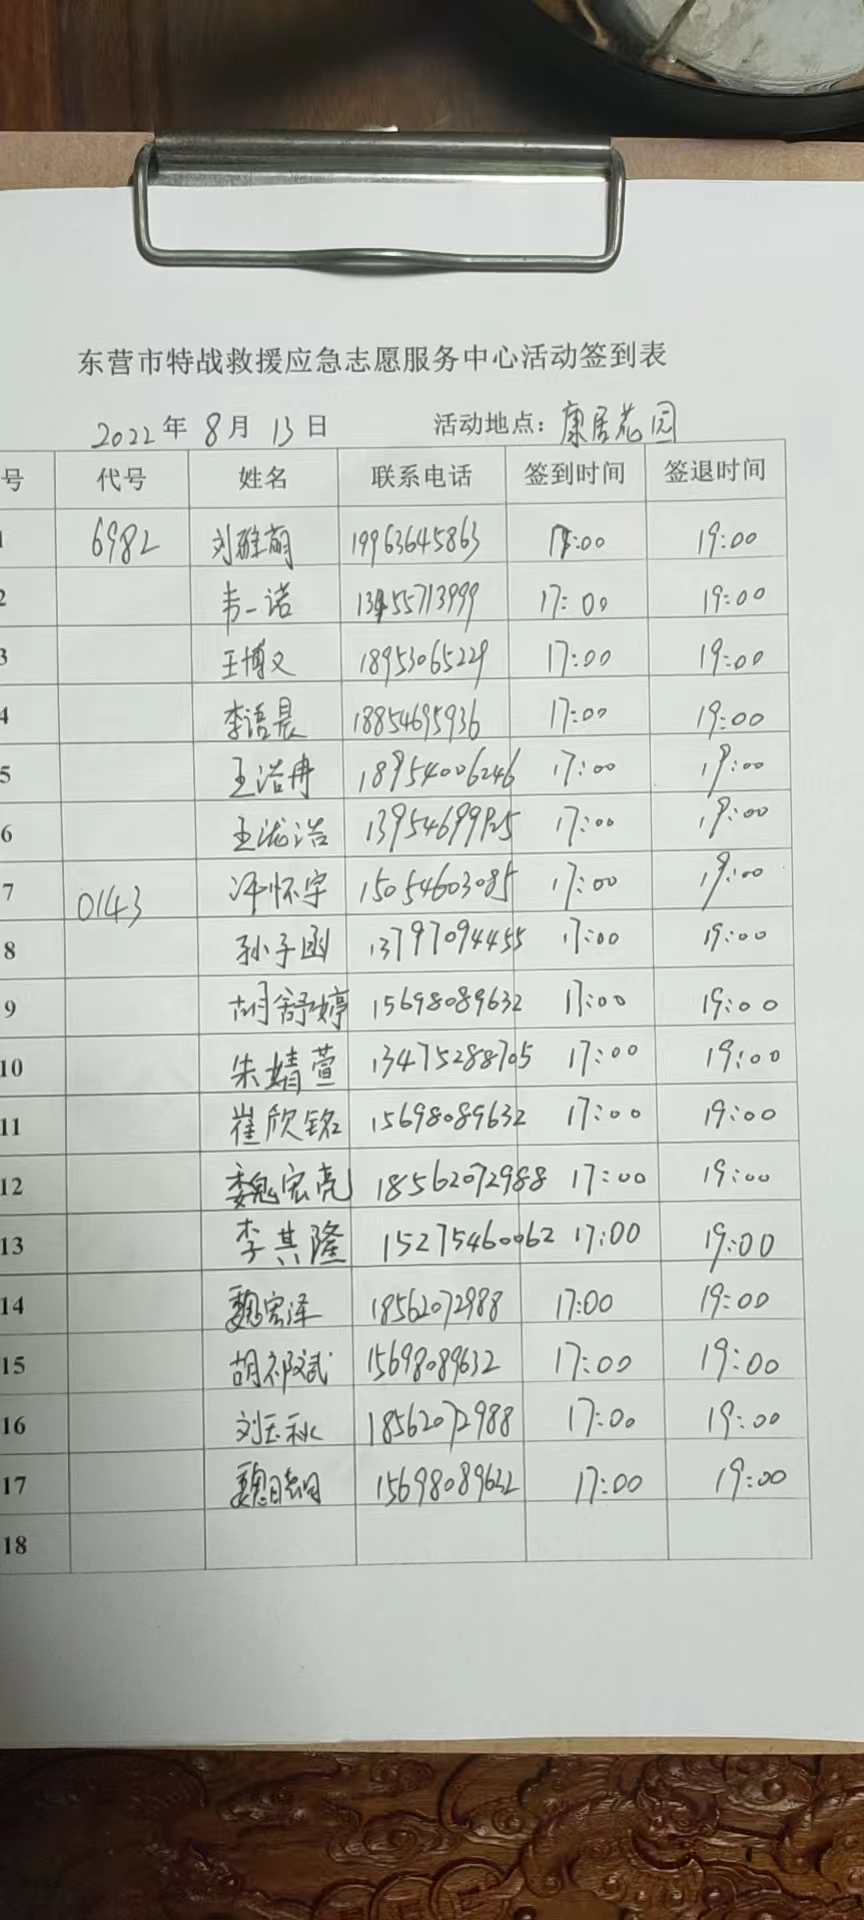 东营市特战救援应急志愿服务中心活动签到表
2022年 8月 13日 活动地点：康居花园
号 代号 姓名 联系电话 签到时间 签退时间
1 6982 刘雅萌 19963645863 17:00 19:00
2 韦一诺 13455713999 17:00 19:00
3 王博文 18953065229 17:00 19:00
4 李语晨 18854695936 17:00 19:00
5 王浩冉 18954006246 17:00 19:00
6 王浩 17:00 19:00
7 0143 怀宇 15054603085 17:00 19:00
8 孙子函 13797094455 17:00 19:00
9 胡舒婷 15698089632 17:00 19:00
10 朱婧萱 13475288705 17:00 19:00
11 崔欣铭 15698089632 17:00 19:00
12 魏宏亮 18562072988 17:00 19:00
13 李其隆 15275460062 17:00 19:00
14 魏宏泽 18562072988 17:00 19:00
15 胡祁斌 15698089632 17:00 19:00
16 刘玉秋 18562072988 17:00 19:00
17 魏晓 15698089632 17:00 19:00
18